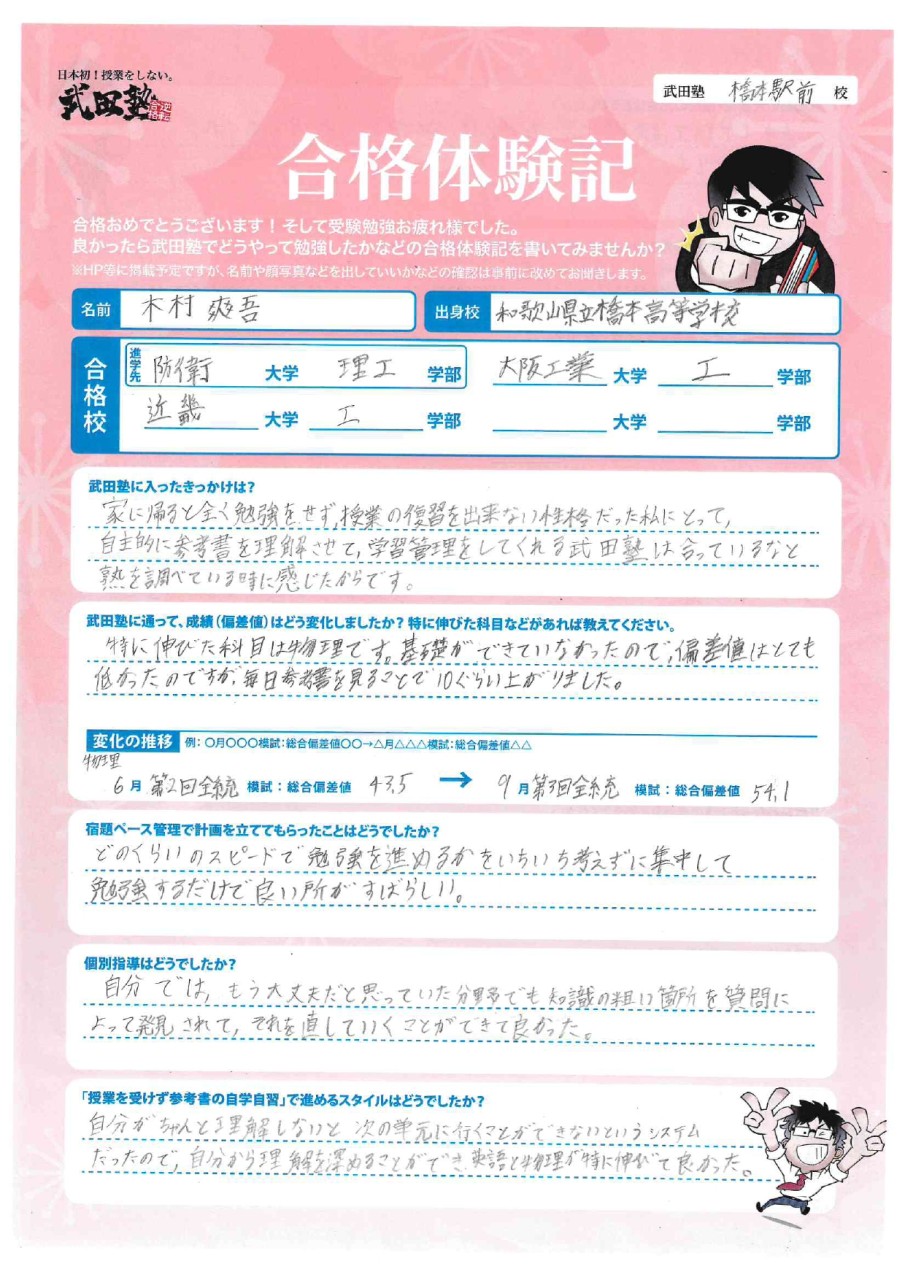 日本初!授業をしない。
武田塾 逆転合格
武田塾 橋本駅前 校
合格体験記
合格おめでとうございます!そして受験勉強お疲れ様でした。
良かったら武田塾でどうやって勉強したかなどの合格体験記を書いてみませんか?
※HP等に掲載予定ですが、名前や顔写真などを出していいかなどの確認は事前に改めてお聞きします。
名前 木村 爽吾 出身校 和歌山県立橋本高等学校
合格校
進学先 防衛 大学 理工 学部 大阪工業 大学 工 学部
近畿 大学 工 学部 大学 学部
武田塾に入ったきっかけは?
家に帰ると全く勉強をせず,授業の復習を出来ない性格だった私にとって,
自主的に参考書を理解させて,学習管理をしてくれる武田塾は合っているなと
熟を調べている時に感じたからです。
武田塾に通って、成績(偏差値)はどう変化しましたか?特に伸びた科目などがあれば教えてください。
特に伸びた科目は物理です。基礎ができていなかったので,偏差値はとても
低かったのですが,毎日参考書を見ることで10ぐらい上がりました。
変化の推移 例:〇月〇〇〇模試:総合偏差値〇〇→△月△△△模試:総合偏差値△△
物理
6月 第2回全統 模試:総合偏差値 43,5 → 9月第3回全統 模試:総合偏差値 54,1
宿題ペース管理で計画を立ててもらったことはどうでしたか?
どのくらいのスピードで勉強を進めるかをいちいち考えずに集中して
勉強するだけで良い所がすばらしい。
個別指導はどうでしたか?
自分では,もう大丈夫だと思っていた分野でも知識の粗い箇所を質問に
よって発見されて,それを直していくことができて良かった。
「授業を受けず参考書の自学自習」で進めるスタイルはどうでしたか?
自分がちゃんと理解しないと次の単元に行くことができないというシステム
だったので,自分から理解を深めることができ,英語と物理が特に伸びて良かった。